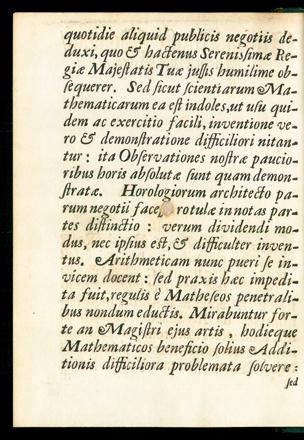 quotidie aliquid publicis negotiis de-
duxi, quo & hactenus Serenissimæ Re-
giæ Majestatis Tuæ jussis humilime ob-
sequerer. Sed sicut scientiarum Ma-
thematicarum ea est indoles, ut usu qui-
dem ac exercitio facili, inventione ve-
ro & demonstratione difficiliori nitan-
tur : ita Observationes nostræ paucio-
ribus horis absolutæ sunt quam demon-
stratæ. Horologiorum architecto pa-
rum negotii faces rotulæ in notas par-
tes distinctio : verum dividendi mo-
dus, nec ipsius est, & difficulter inven-
tus. Arithmeticam nunc pueri se in-
vicem docent : sed praxis hæc impedi-
ta fuit, regulis è Matheseos penetrali-
bus nondum eductis. Mirabuntur for-
te an Magistri ejus artis, hodieque
Mathematicos beneficio solius Addi-
tionis difficiliora problemata solvere :
sed